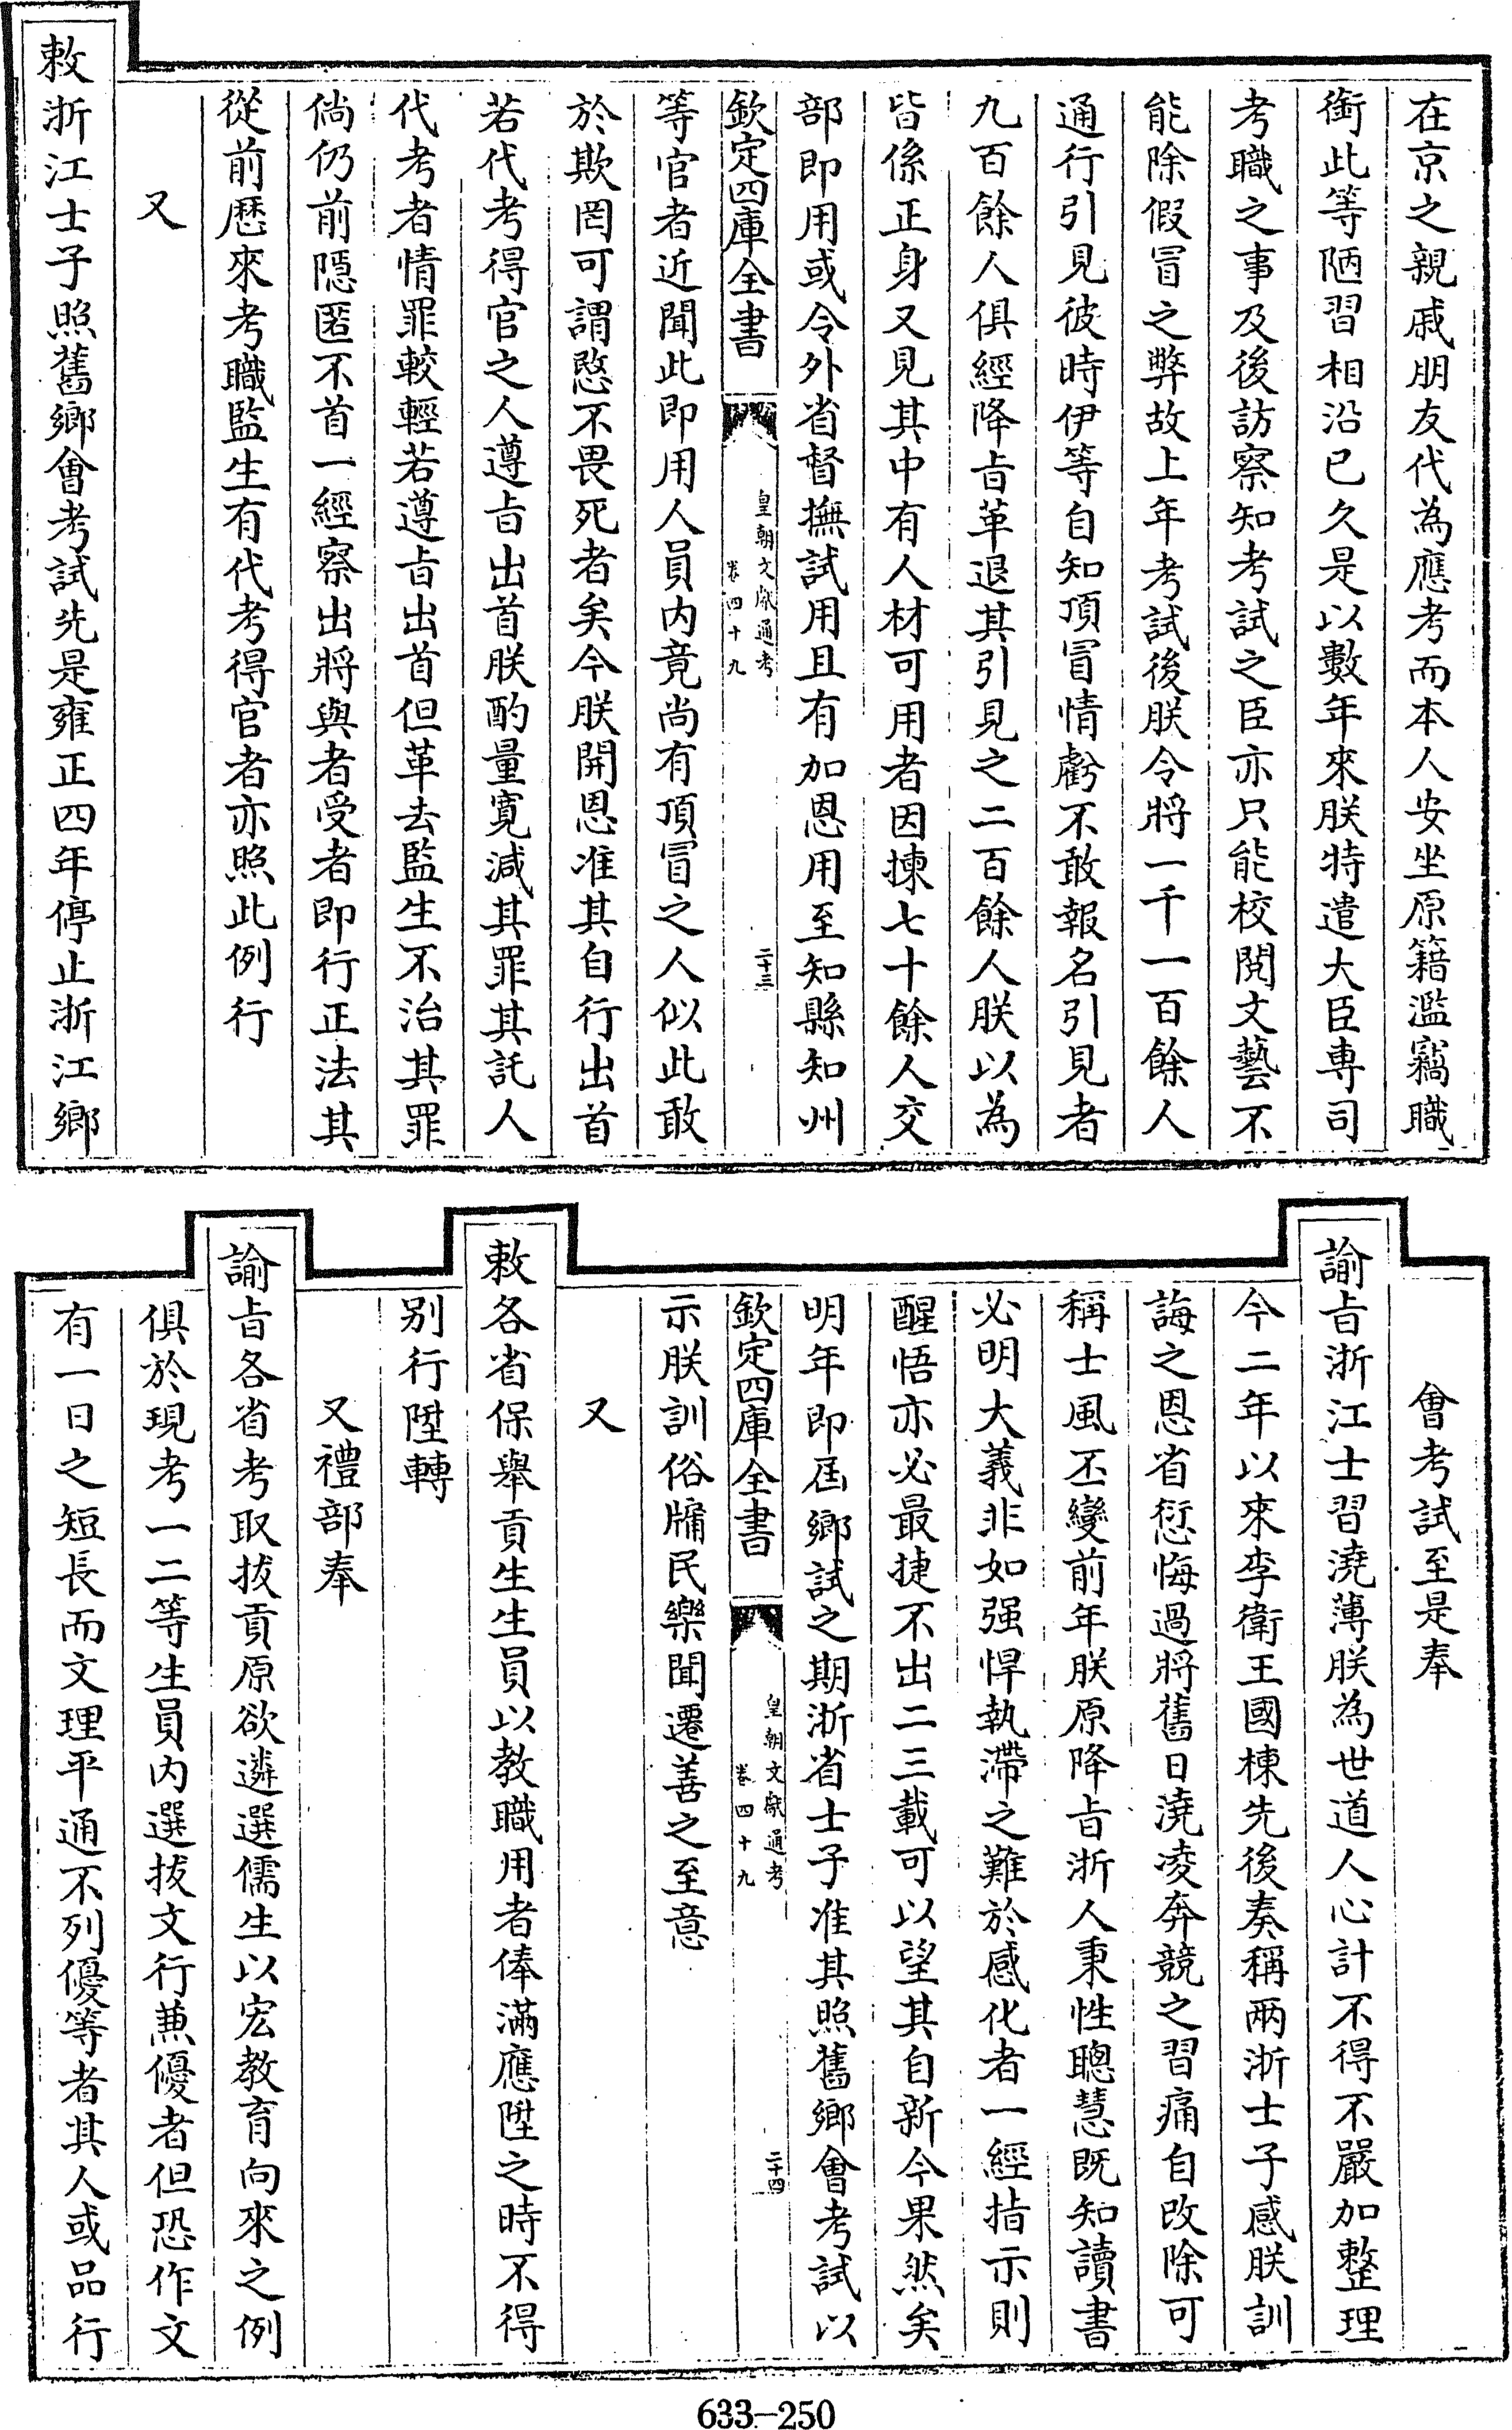 在京之親戚朋友代為應考而本人安坐原籍濫竊職
銜此等陋習相沿已久是以數年來朕特遣大臣専司
考職之事及後訪察知考試之臣亦只能校閱文藝不
能除假冒之弊故上年考試後朕令將一千一百餘人
通行引見彼時伊等自知頂冒情虧不敢報名引見者
九百餘人俱經降㫖革退其引見之二百餘人朕以為
皆係正身又見其中有人材可用者因揀七十餘人交
部即用或令外省督撫試用且有加恩用至知縣知州
欽定四庫全書
皇朝文獻通考
卷四十九
二十三
等官者近聞此即用人員内竟尚有頂冒之人似此敢
於欺罔可謂愍不畏死者矣今朕開恩准其自行出首
若代考得官之人遵㫖出首朕酌量寛減其罪其託人
代考者情罪較輕若遵㫖出首但革去監生不治其罪
倘仍前隱匿不首一經察出將與者受者即行正法其
從前歴來考職監生有代考得官者亦照此例行
又
敕浙江士子照舊鄉會考試先是雍正四年停止浙江鄉
會考試至是奉
諭㫖浙江士習澆薄朕為世道人心計不得不嚴加整理
今二年以來李衛王國棟先後奏稱兩浙士子感朕訓
誨之恩省愆悔過將舊日澆凌奔競之習痛自改除可
稱士風丕變前年朕原降㫖浙人秉性聰慧既知讀書
必明大義非如强悍執滯之難於感化者一經指示則
醒悟亦必最捷不出二三載可以望其自新今果然矣
明年即屆鄉試之期浙省士子准其照舊鄉會考試以
欽定四庫全書
皇朝文獻通考
卷四十九
二十四
示朕訓俗牖民樂聞遷善之至意
又
敕各省保舉貢生生員以教職用者俸滿應陞之時不得
别行陞轉
又禮部奉
諭㫖各省考取拔貢原欲遴選儒生以宏教育向來之例
俱於現考一二等生員内選拔文行兼優者但恐作文
有一日之短長而文理平通不列優等者其人或品行
633-250